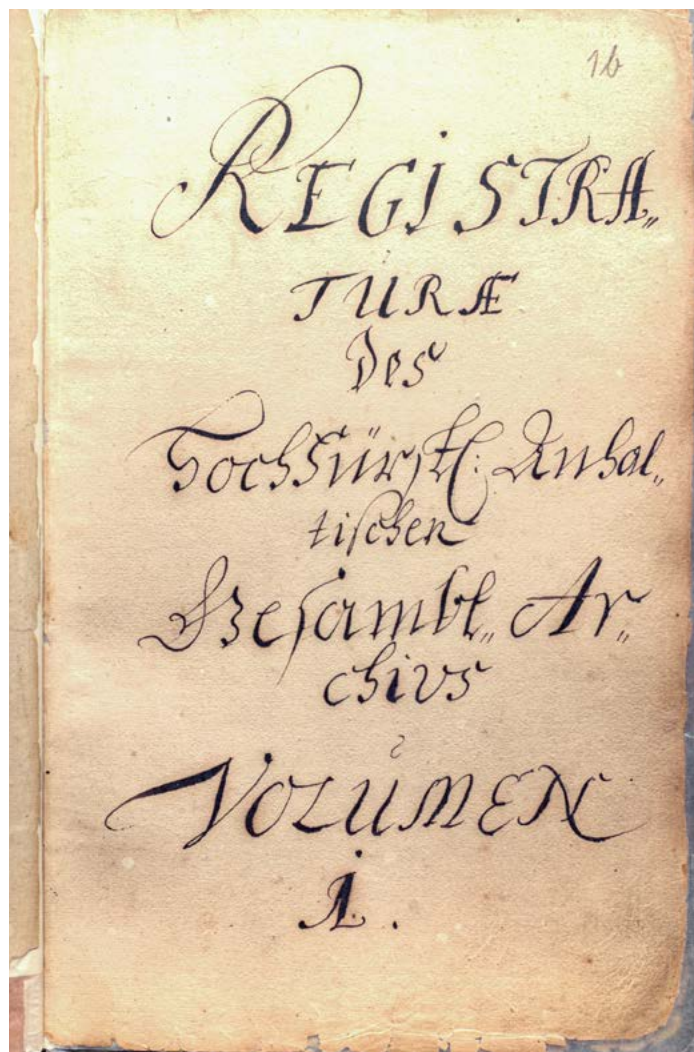 1b
REGISTRA„
TURÆ
des
HochFürstl: Anhal„
tischen
Gesambt„ Ar„
chivs
VOLUMEN
I.